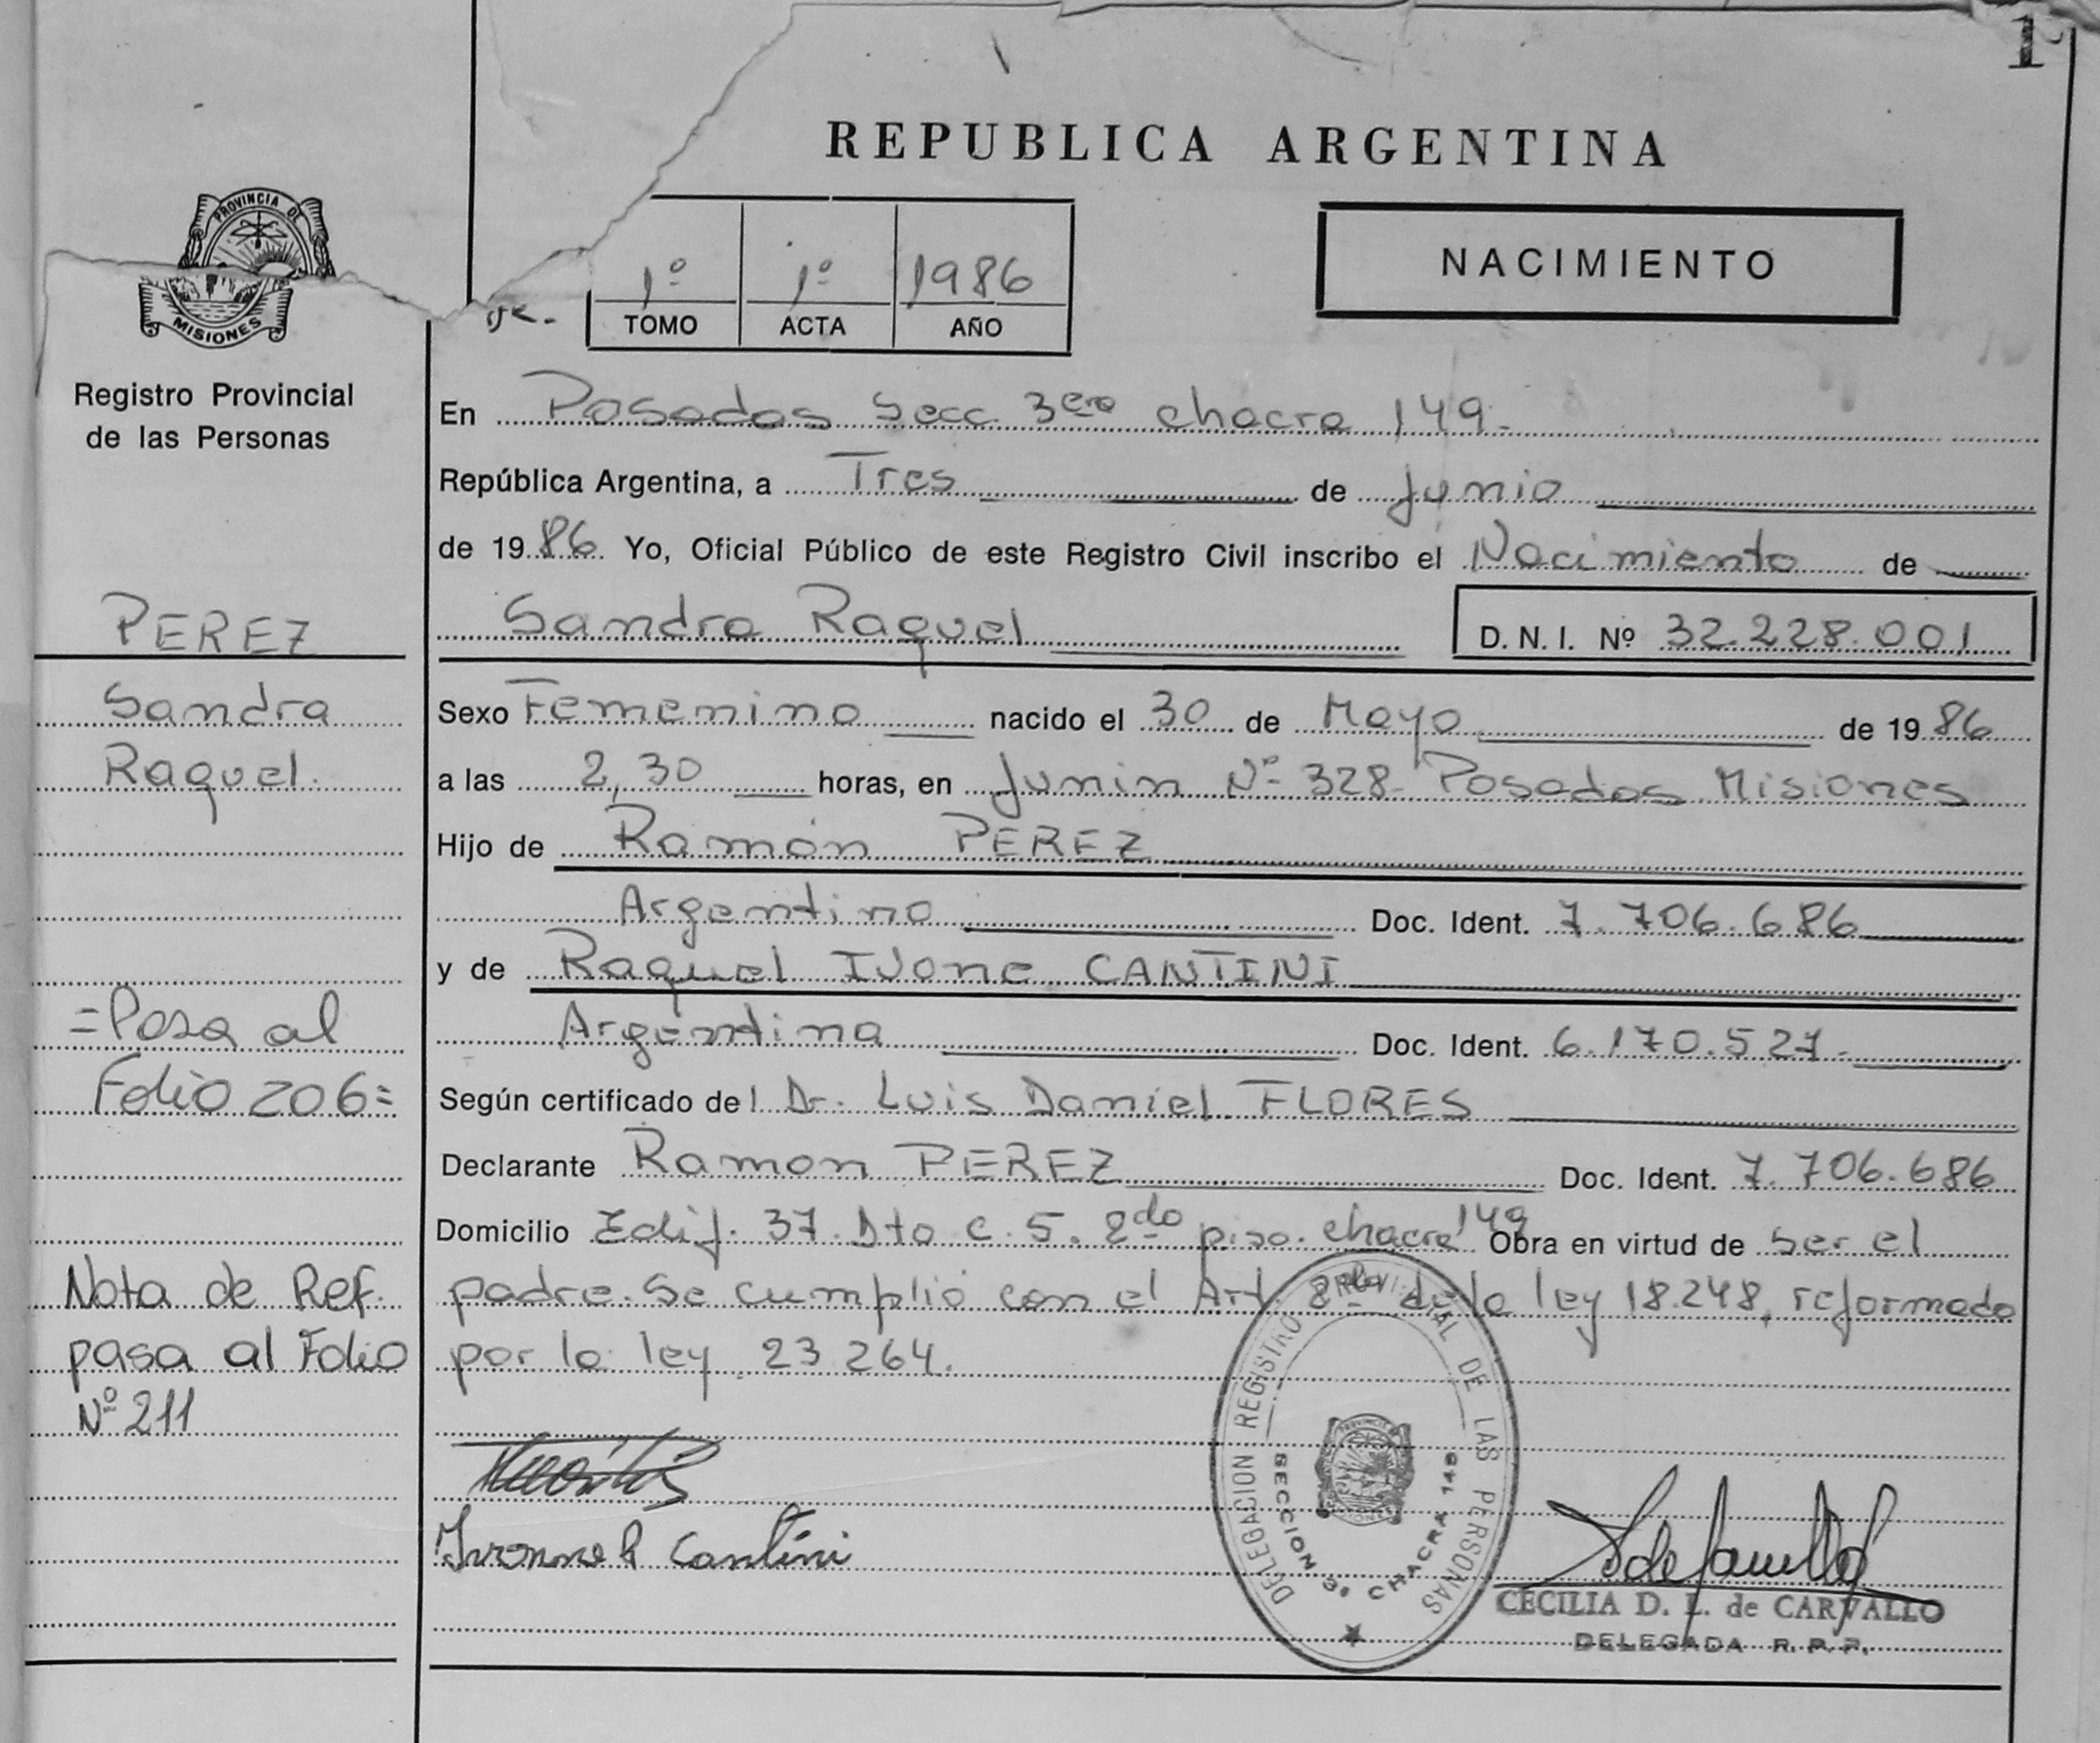 1
REPUBLICA ARGENTINA
PROVINCIA DE
MISIONES
1º 1º 1986
TOMO ACTA AÑO
NACIMIENTO
Registro Provincial
de las Personas
PEREZ
Sandra
Raquel.
=Pasa al
Folio 206=
Nota de Ref.
pasa al Folio
Nº 211
En Posadas Secc. 3era chacra 149.
República Argentina, a Tres de Junio
de 1986 Yo, Oficial Público de este Registro Civil inscribo el Nacimiento de
Sandra Raquel D. N. I. Nº 32.228.001
Sexo Femenino nacido el 30 de Mayo de 1986
a las 2,30 horas, en Junin Nº 328- Posadas Misiones
Hijo de Ramón PEREZ
Argentino Doc. Ident. 7.706.686
y de Raquel Ivone CANTINI
Argentina Doc. Ident. 6.170.527.
Según certificado del Dr. Luis Daniel FLORES
Declarante Ramon PEREZ Doc. Ident. 7.706.686
Domicilio Edif. 37. Dto c. 5. 2do piso. chacra 149 Obra en virtud de ser el
padre. Se cumplió con el Art. de la ley 18.248, reformado
por la ley 23.264.
Ivonne R Cantini
DELEGACION REGISTRO PROVINCIAL DE LAS PERSONAS
SECCION 3ª CHACRA 149
CECILIA D. L. de CARVALLO
DELEGADA R. P. P.